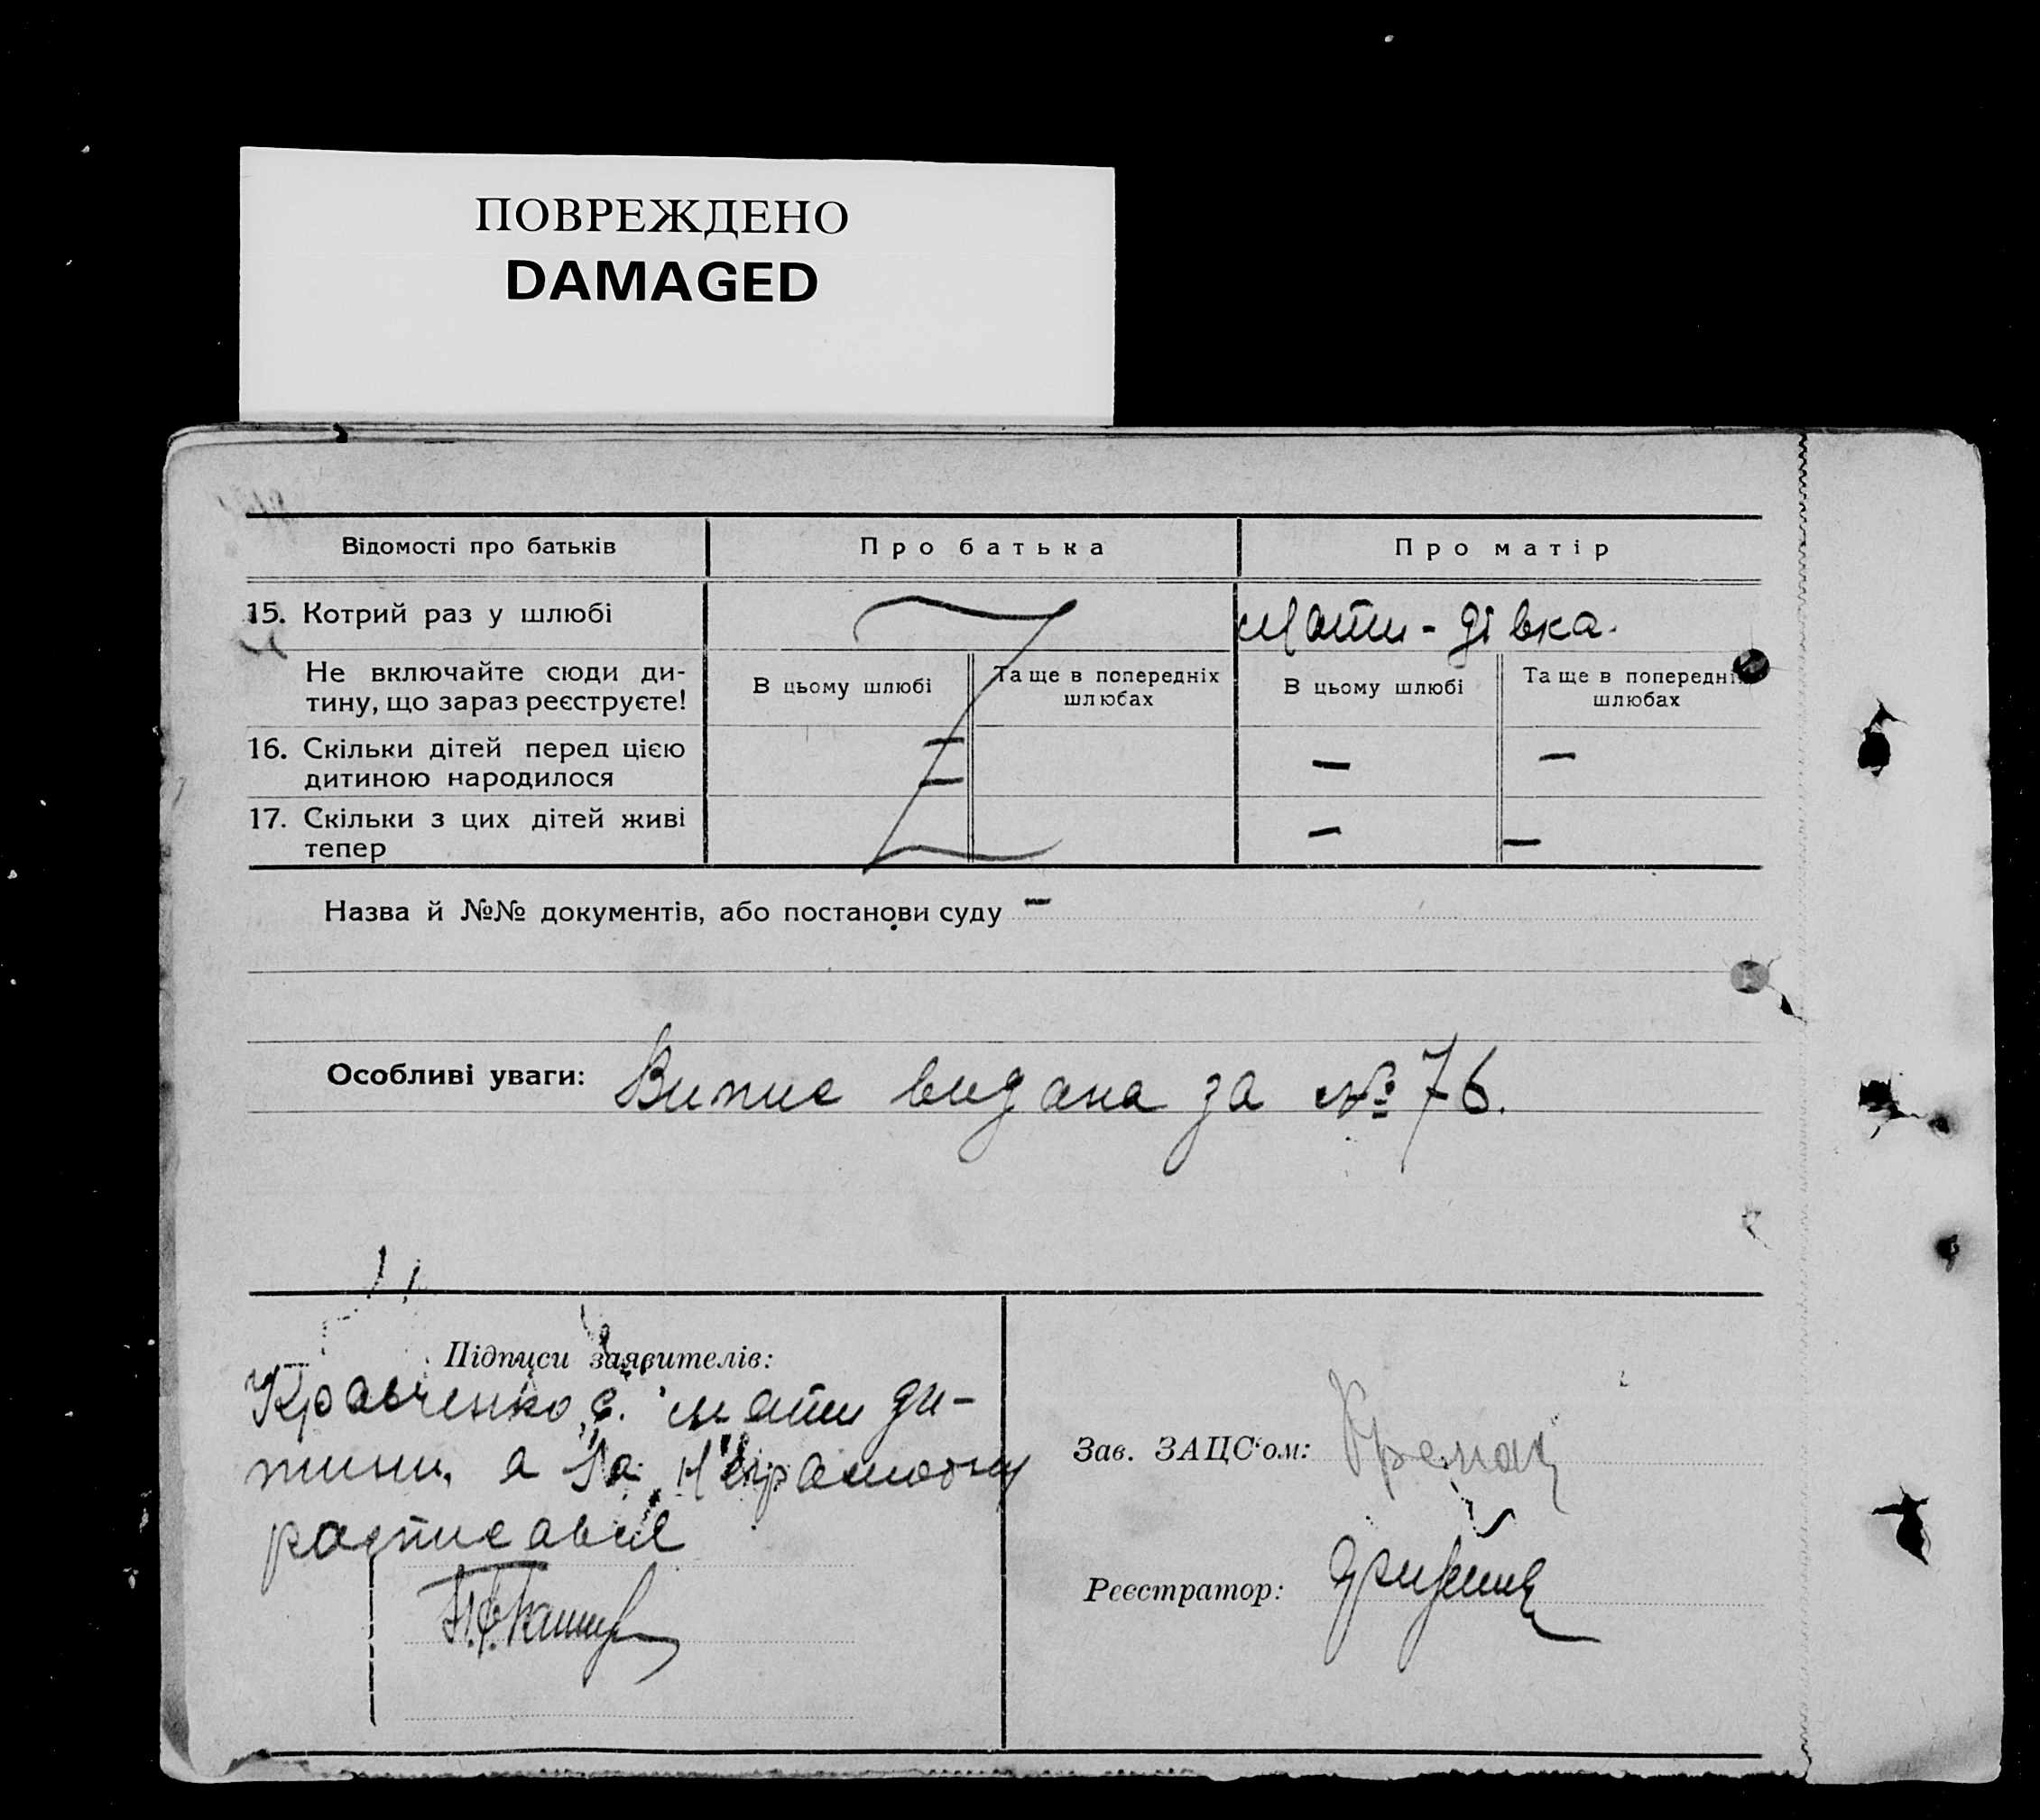 ПОВРЕЖДЕНО
DAMAGED
Відомості про батьків
Про батька
Про матір
15. Котрий раз у шлюбі
Мати - дівка.
Не включайте сюди ди-
тину, що зараз реєструєте!
В цьому шлюбі
Та ще в попередніх
шлюбах
В цьому шлюбі
Та ще в попередніх
шлюбах
16. Скільки дітей перед цією
дитиною народилося
— —
17. Скільки з цих дітей живі
тепер
— —
Назва й №№ документів, або постанови суду —
Особливі уваги: Випис видана за №76.
Підписи заявителів:
Кравченко, є. мати ди-
тини, а за
росписавсе
Зав. ЗАЦС'ом:
Реєстратор: